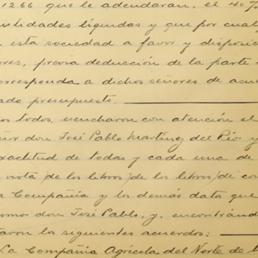 1266 que le adeudaran, el 40 %
ntidades líquidas y que por cual
esta sociedad a favor y disposici
ores, previa deducción de la parte
corresponda a dichos señores de acue
ado presupuesto.
os todos escucharon con atención el
ñor don José Pablo Martínez del Río y
exactitud de todas y cada una de
nota de los libros/de los libros/de co
a Compañía y lo demás data que
omo don José Pablo, y, encontránd
taron los siguientes acuerdos:
La Compañía Agrícola del Norte de